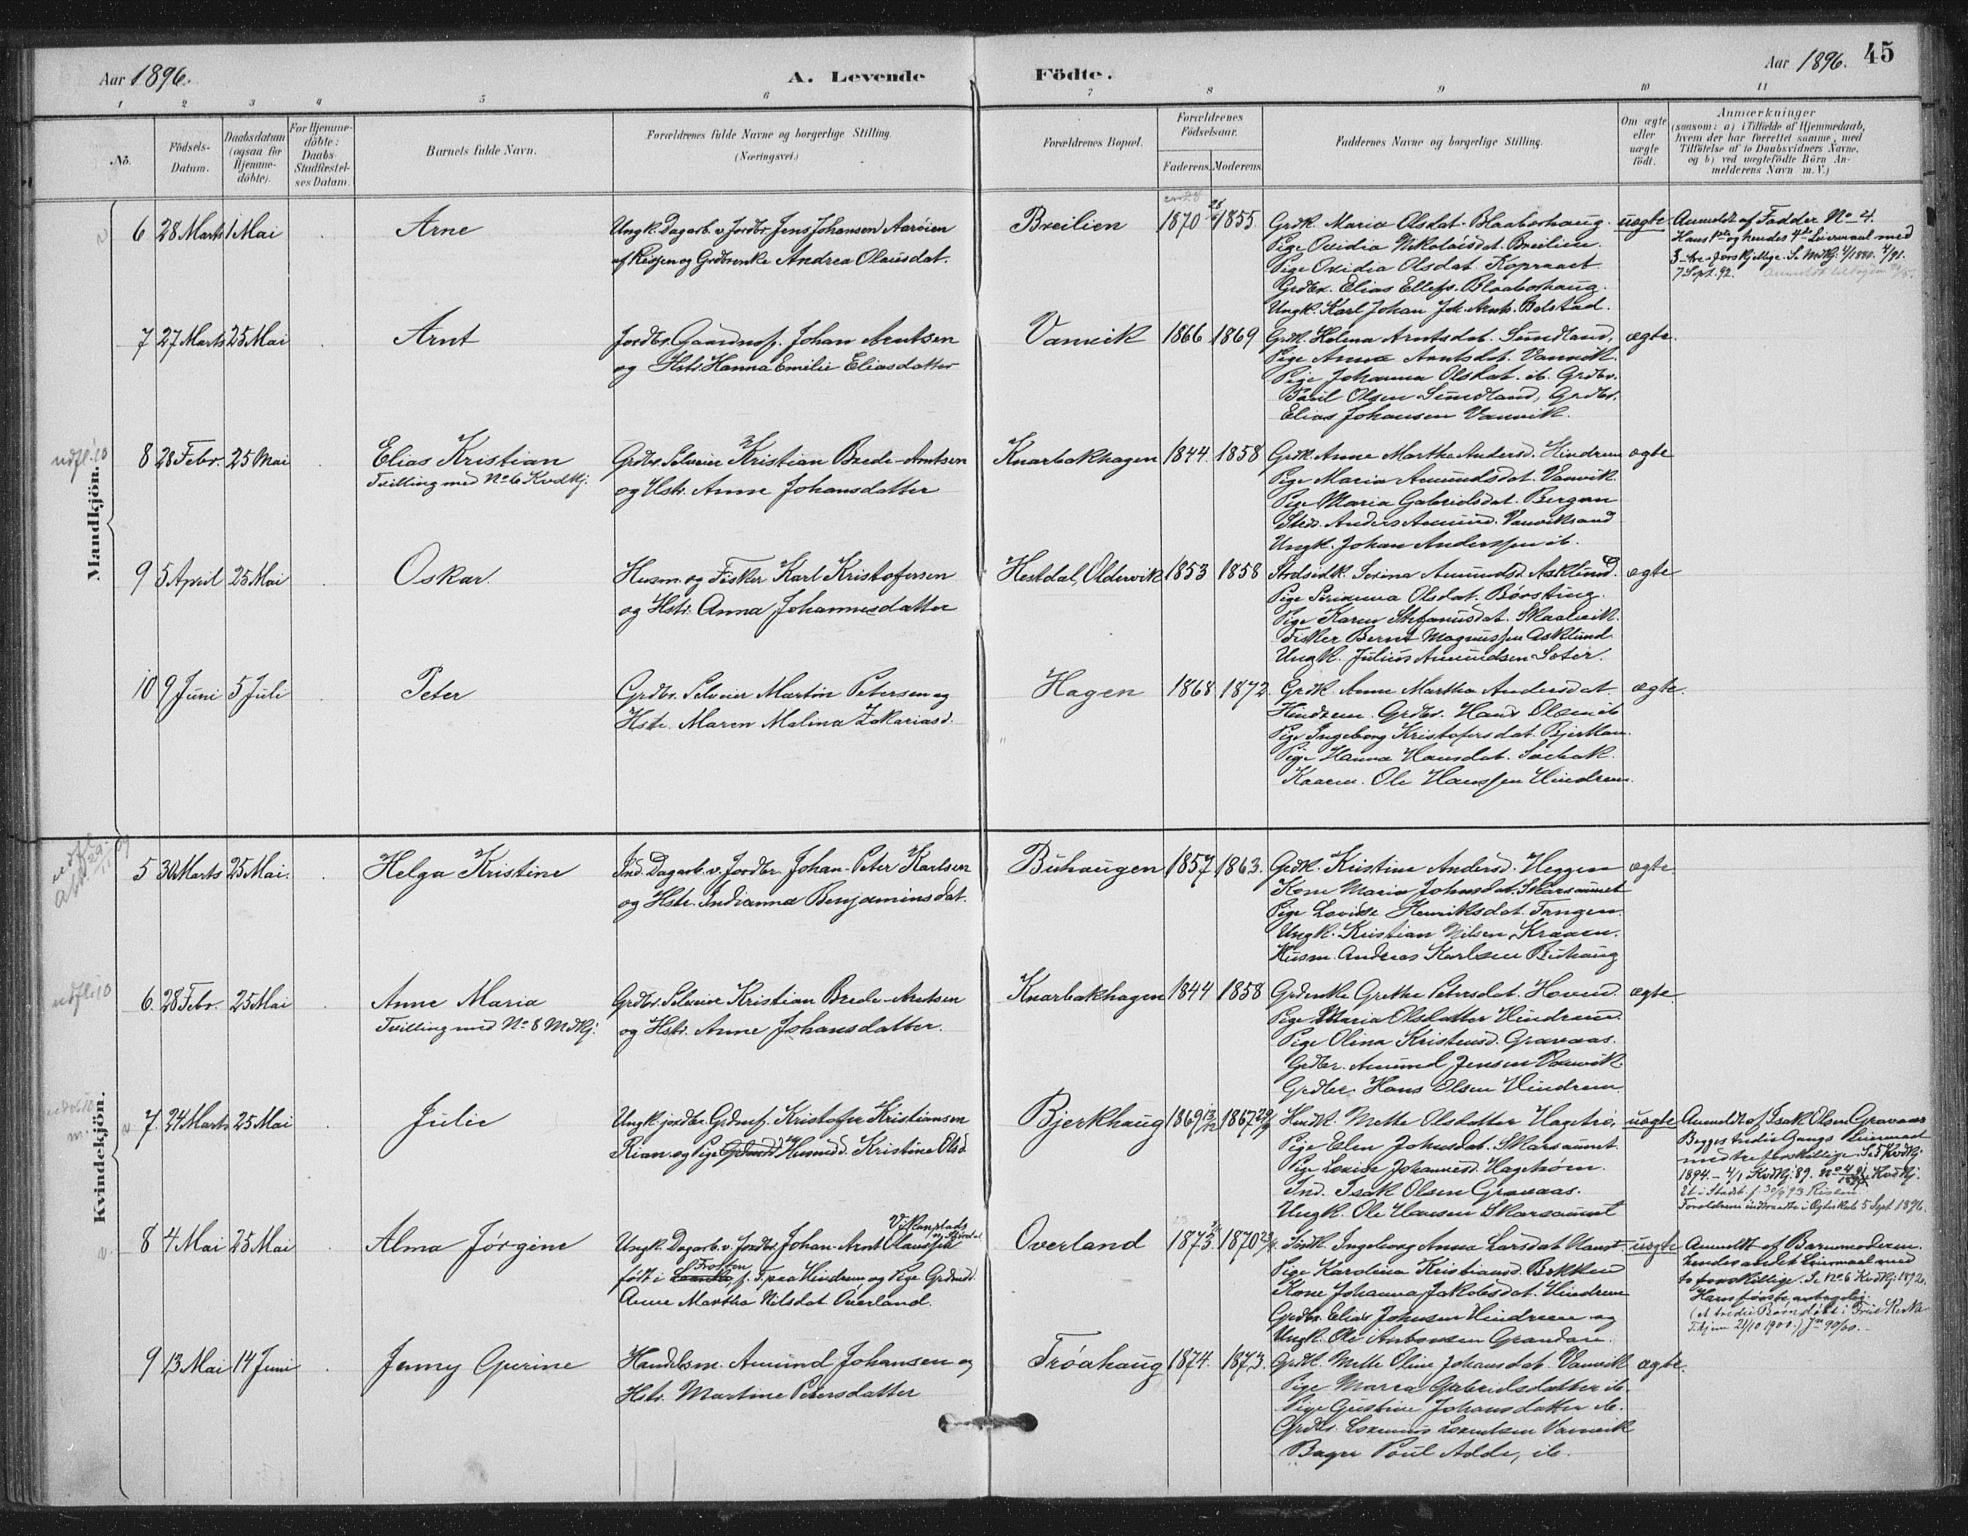 Aar 1896.
A. Levende
Födte.
Aar 1896. 45
1 2 3 4 5 6 7 8 9 10 11
No.
Födsels-Datum.
Daabsdatum (ogsaa for Hjemme-döbte).
For Hjemme-döbte: Daabs-Stadfæstel-ses Datum.
Barnets fulde Navn.
Forældrenes fulde Navne og borgerlige Stilling.
(Næringsvei.)
Forældrenes Bopæl.
Forældrenes Födselsaar.
Faderens. Moderens.
Faddernes Navne og borgerlige Stilling.
Om ægte eller uægte födt.
Anmærkninger
(saasom: a) i Tilfælde af Hjemmedaab, hvem der har forrettet samme, med Tilföielse af to Daabsvidners Navne, og b) ved uægtefödte Börn Anmelderens Navn m. V.)
Mandkjön.
6 28 Marts 1 Mai Arne
Ungk. Dagarb. v. Jordbr. Jens Johansen Aaröien
af Rissen og Grdbrenke Andrea Olausdat.
Breilien 1870 1855
Grdk. Maria Olsdat. Blaaborhaug.
Pige Ovidia Nikolaisdat. Breilien.
Pige Ovidia Olsdat. Kopraaet.
Grdbr. Elias Ellefs. Blaaborhaug.
Ungk. Karl Johan Joh. Arnts. Bolstad.
uægte
Anmeldt af Fadder No 4.
Hans 1ste og hendes 4de Leiermaal med
7 Sept. 92.
7 27 Marts 25 Mai Arnt
Jordbr. Gaardmsf. Johan Arntsen
og Hstr. Hanna Emilie Eliasdatter
Vanvik 1866 1869
Grdk. Helena Arntsdat. Sundland,
Pige Anna Arntsdat. Vanvik.
Pige Johanna Olsdat. ib. Grdbr.
Poul Olsen Sundland, Grdbr.
Elias Johansen Vanvik.
ægte.
8 28 Febr. 25 Mai Elias Kristian
Tvilling med No 6 Kvdkj.
Grdbr. Selveier Kristian Brede Arntsen
og Hstr. Anne Johansdatter
Knarbakhagen 1844. 1858
Grdk. Anne Martha Andersd. Hindrem
Pige Maria Amundsdat. Vanvik.
Pige Maria Gabrielsdat. Bergan
Anders Amund. Vanviksand
Ungk. Johan Anderssen ib.
ægte
9 5 April 25 Mai Oskar.
Husm. og Fisker Karl Kristofersen
og Hstr. Anna Johannesdatter
Hestdal, Oldervik 1853 1858
Serina Amundsd. Asklund.
Pige Serianna Olsdat. Börsting.
Pige Karen Stefanusdat. Skaalvik.
Fisker Bernt Magnussen Asklund
Ungk. Julius Amundsen Sæter.
ægte
10 9 Juni 5 Juli Peter
Grdbr. Selveier Martin Petersen og
Hstr. Maren Malina Zakariasd.
Hagen 1868 1872.
Grdk. Anne Martha Andersdat
Hindrem. Grdbr. Hans Olsen ib
Pige Ingeborg Kristofersdat. Bjerkan.
Pige Hanna Hansdat. Sæbak.
Kaarm. Ole Hanssen Hindrem.
ægte.
Kvindekjön.
5 30 Marts 25 Mai. Helga Kristine
Ind. Dagarb. v. Jordbr. Johan Peter Karlsen
og Hstr. Indianna Benjaminsdat.
Buhaugen 1857 1863.
Grdk. Kristine Andersd. Heggem
Kone Maria Johnsdat. Skarsaunet
Pige Lovise Henriksdat. Tangen.
Ungk. Kristian Nilsen Kraaen.
Husm. Andreas Karlsen Buhaug
ægte
6. 28 Febr. 25 Mai Anne Maria
Tvilling med No 8 Mdkj.
Grdbr. Selveier Kristian Brede Arntsen
og Hstr. Anne Johansdatter.
Knarbakhagen 1844 1858
Grdenke Grethe Petersdat. Hoven.
Pige Maria Olsdatter Hindrem.
Pige Olina Kristensd. Gravaas.
Grdbr. Amund Jensen Vanvik
Grdbr. Hans Olsen Hindrem
ægte.
7. 24 Marts 25 Mai Julie
Ungk. jordbr. Grdmsf. Kristofer Kristiansen
Rian og Pige Husmdd. Kristine Olsd
Bjerkhaug 1869 1867
Mette Olsdatter Hagehö,
Pige Elen Johnsdat. Skarsaunet
Pige Lovise Johannesd. Hagehöen.
Ind. Isak Olsen Gravaas.
Ungk. Ole Hansen Skarsaunet
uægte
Anmeldt af Isak Olsen Gravaas
Begges tredie Gangs Leiermaal
med tre forskillige. Se 5 Kvdkj
Forældrene indtraadte i Ægteskab 5 Sept. 1896.
8 4 Mai 25 Mai Alma Jörgine
Ungk. Dagarb. v. Jordbr. Johan Arnt Olaussen
födt i Frosten f. T. paa Hindrem og Pige Grdmdd.
Anne Martha Nilsdat. Overland.
Overland 1873 1870
Ingeborg Anna Larsdat.
Pige Karolina Kristiansd. Bakken
Kone Johanna Jakobsdat. Hindrem
Grdbr. Elias Johnsen Hindrem og
Ungk. Ole Antonsen Grandan.
uægte
Anmeldt af Barnemoderen.
hendes andet Leiermaal med
to forskillige. Se No 6 Kvdkj. 1892.
Hans förste
9 13 Mai 14 Juni Jenny Gurine
Handelsm. Amund Johansen og
Hstr. Martine Petersdatter
Tröahaug 1874. 1873.
Grdk. Mette Oline Johansdat. Vanvik
Pige Maria Gabrielsdatter ib.
Pige Gustine Johansdatter ib.
Grdbr. Lorentsen Vanvik
Poul Adde, ib.
ægte.